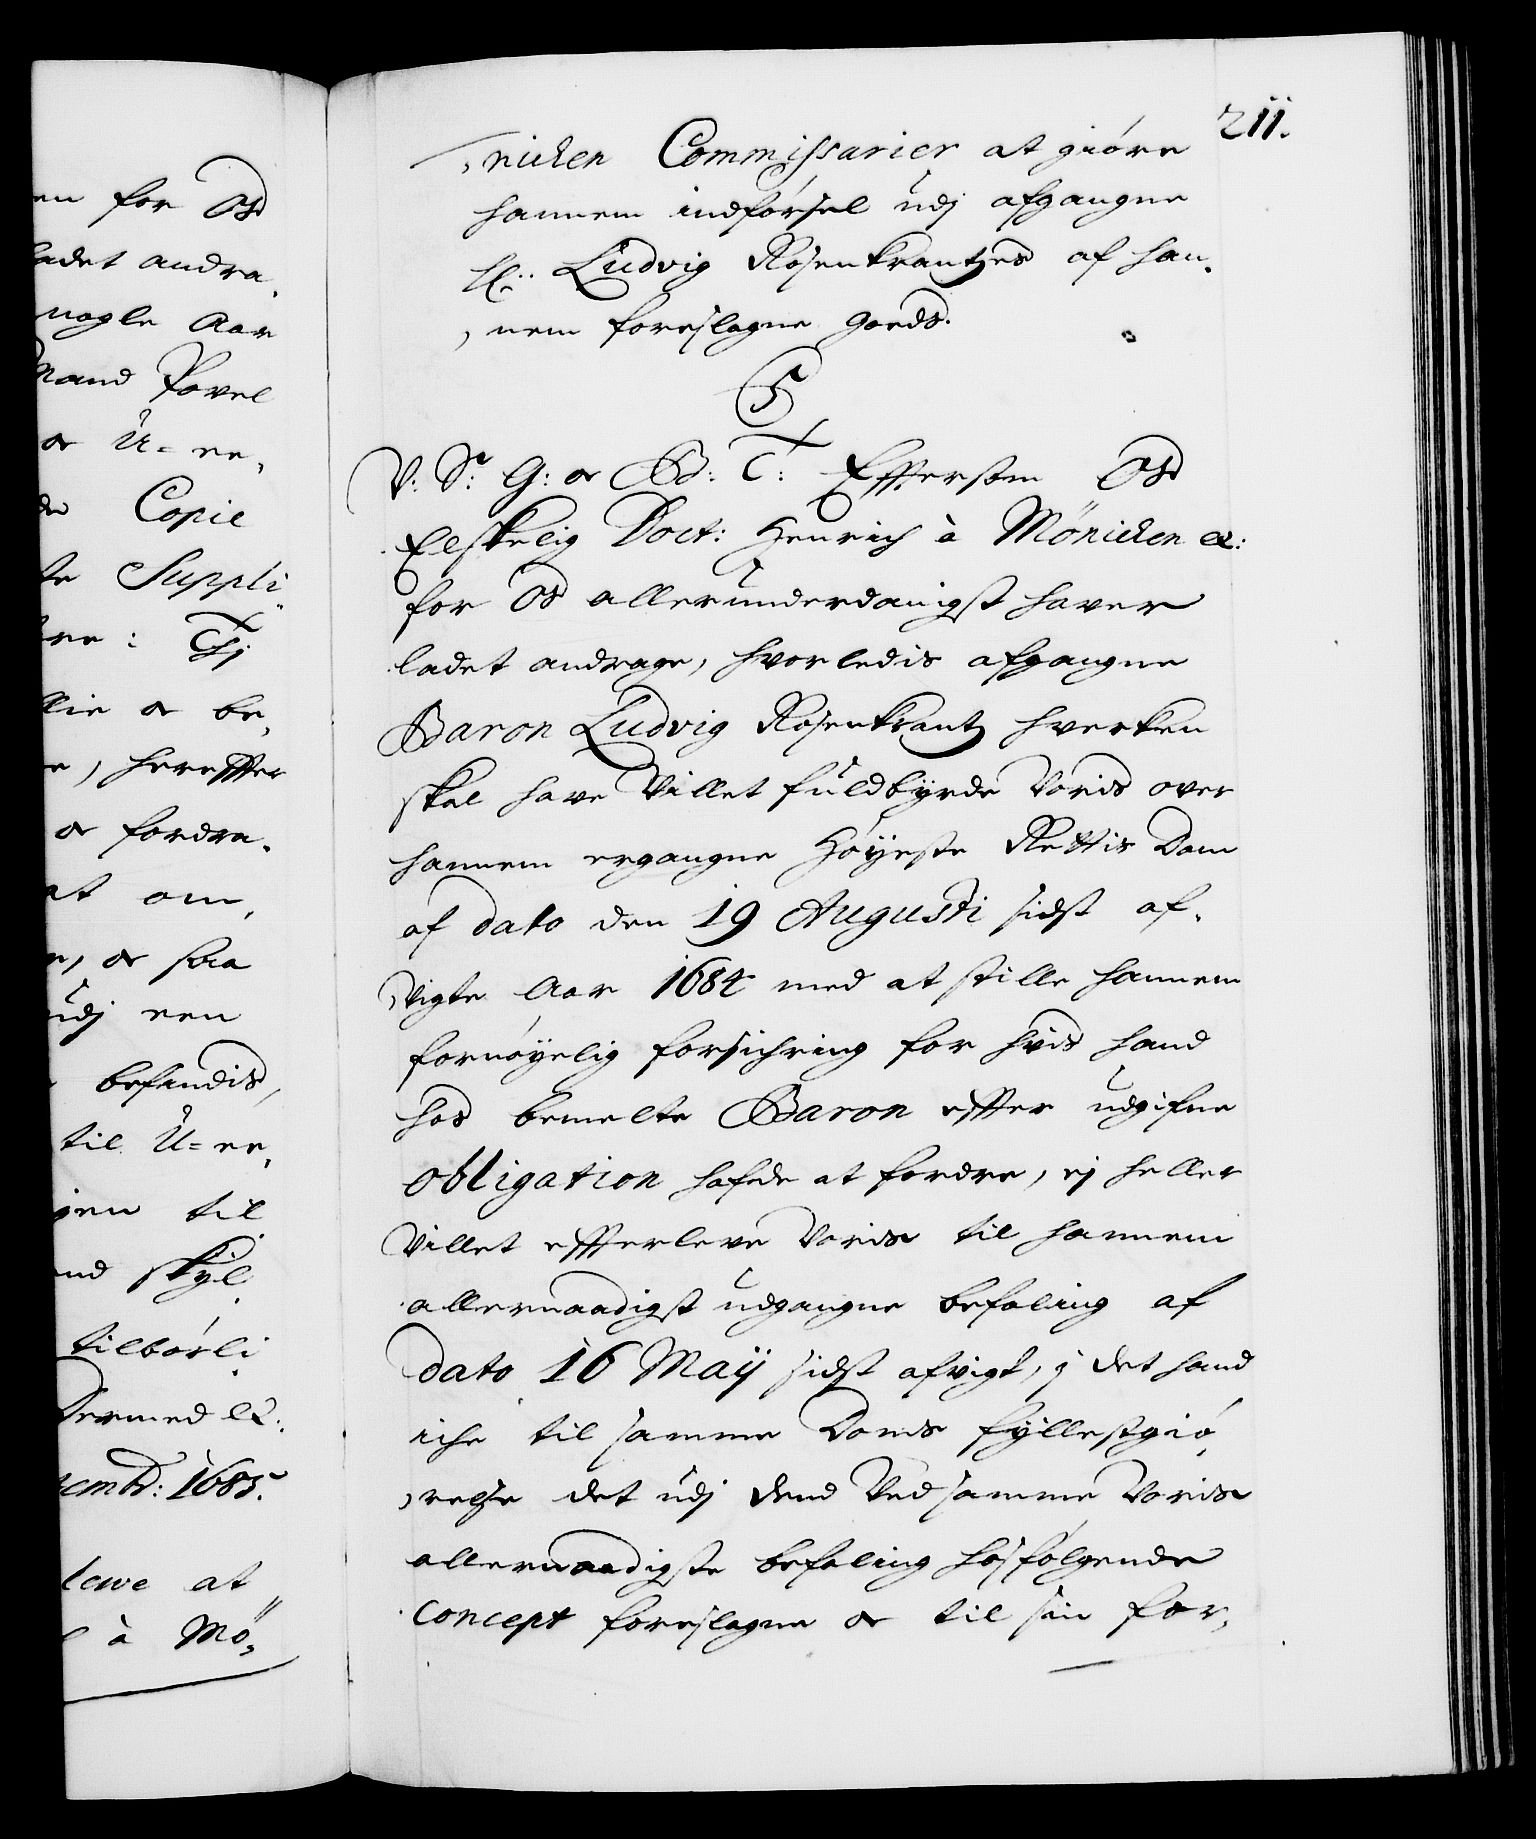 en for Os
ladet andra,
nogle Aar
Mand Povel
& U= ee,
Copie
te Suppli
: Thi
llie & be,
e, hereffter
& fordra,
at om,
e, & saa
udj een
befindis,
til U= ee,
igen til
nd skyl,
tilbørli
Dermed &:
cembd: 1685.
lewe at
à Mö,
211.
,nicken Commissarier at giöre
hannem indförsel udj afgangne
H: Ludvig Rosenkrantzes af han,
,nem foreslagne goeds.
V: S: G: & B: T: Effterson Os
Elskelig Doct: Henrich à Mönicken &:
for Os allerunderdanigst haver
ladet andrage, hvorledis afgangne
Baron Ludvig Rosenkrantz hverken
skal have Villet fuldbyrde Voris over
hannem ergangne Höyeste Rettis Dom
af dato den 19 Augusti sidst af,
,vigte Aar 1684 med at stille hannem
fornöyelig forsichring for hvis hand
hos bemelte Baron effter udgifne
obligation hafde at fordre, ej heller
Villet effterleve Voris til hannem
allernaadigst udgangne befaling af
dato 16 Maij sidst afvigt, i det hand
iche til samme Doms fyllestgiö,
,relse det udj dend Ved samme Voris
allernaadigste befaling hosfölgende
Concept foreslagne & til sin for,